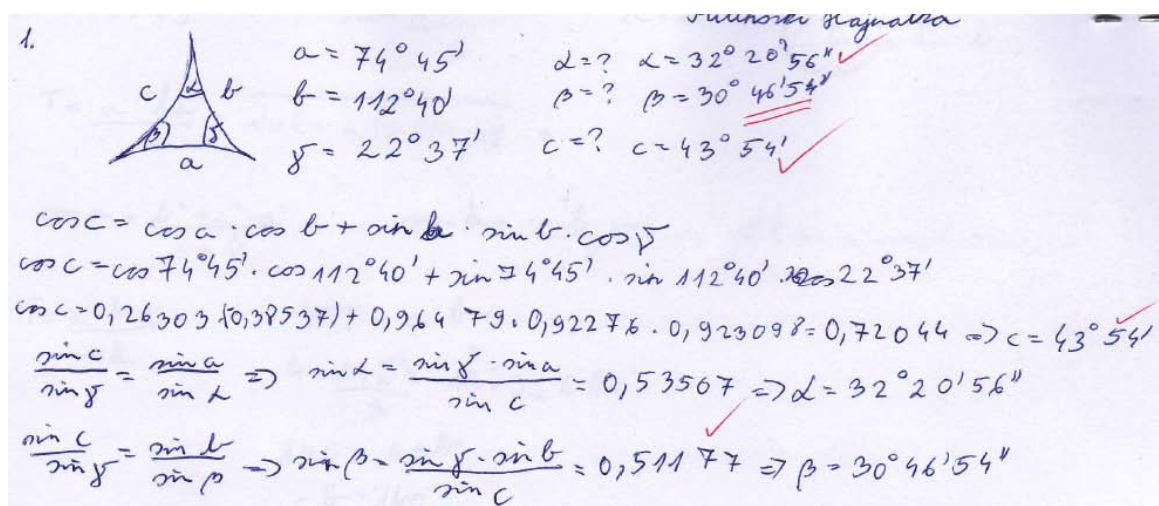 1.
a = 74° 45'
α = ? α = 32° 20' 56"
c α b
b = 112° 40'
β = ? β = 30° 46' 54"
β γ
γ = 22° 37'
c = ? c = 43° 54'
a
cos c = cos a · cos b + sin a · sin b · cos γ
cos c = cos 74° 45' · cos 112° 40' + sin 74° 45' · sin 112° 40' · cos 22° 37'
cos c = 0,26303 · (0,38537) + 0,96479 · 0,92276 · 0,923098 = 0,72044 => c = 43° 54'
sin c / sin γ = sin a / sin α => sin α = sin γ · sin a / sin c = 0,53507 => α = 32° 20' 56"
sin c / sin γ = sin b / sin β => sin β = sin γ · sin b / sin c = 0,51177 => β = 30° 46' 54"